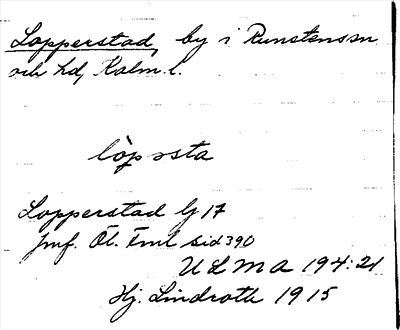 Lopperstad, by i Runstens sn
och hd, Kalm. l.
lòpssta
Lopperstad Lj 17
jmf. Öl. Fml sid 390
ULMA 194:21
Hj. Lindroth 1915